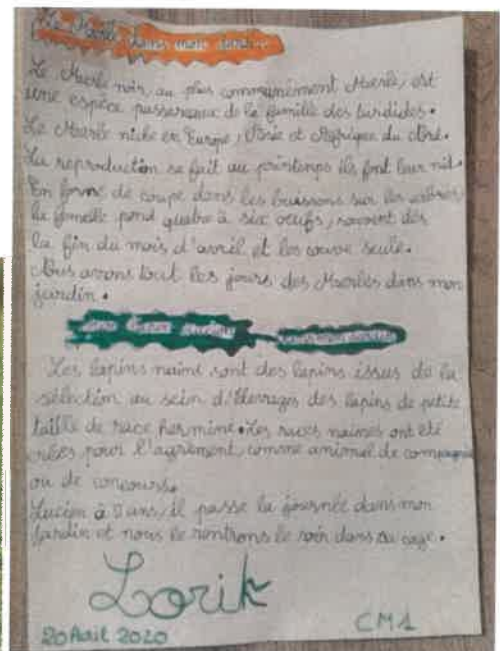 Le Merle dans mon jardin
Le Merle noir, au plus communément Merle, est
une espèce passereaux de la famille des turdidés.
Le Merle niche en Europe, Asie et Afrique du nord.
La reproduction se fait au printemps ils font leur nid.
En forme de coupe dans les buissons sur les arbres,
la femelle pond quatre à six oeufs, souvent dès
la fin du mois d'avril et les couve seule.
Nous avons tout les jours des Merles dans mon
jardin.
Mon lapin Lucien dans mon jardin
Les lapins nains sont des lapins issus de la
sélection au sein d'élevages des lapins de petite
taille de race hermine. Les races naines ont été
crées pour l'agrément, comme animal de compagnie
ou de concours.
Lucien à ans, il passe la journée dans mon
jardin et nous le rentrons le soir dans sa cage.
Lorik
20 Avril 2020 CM1